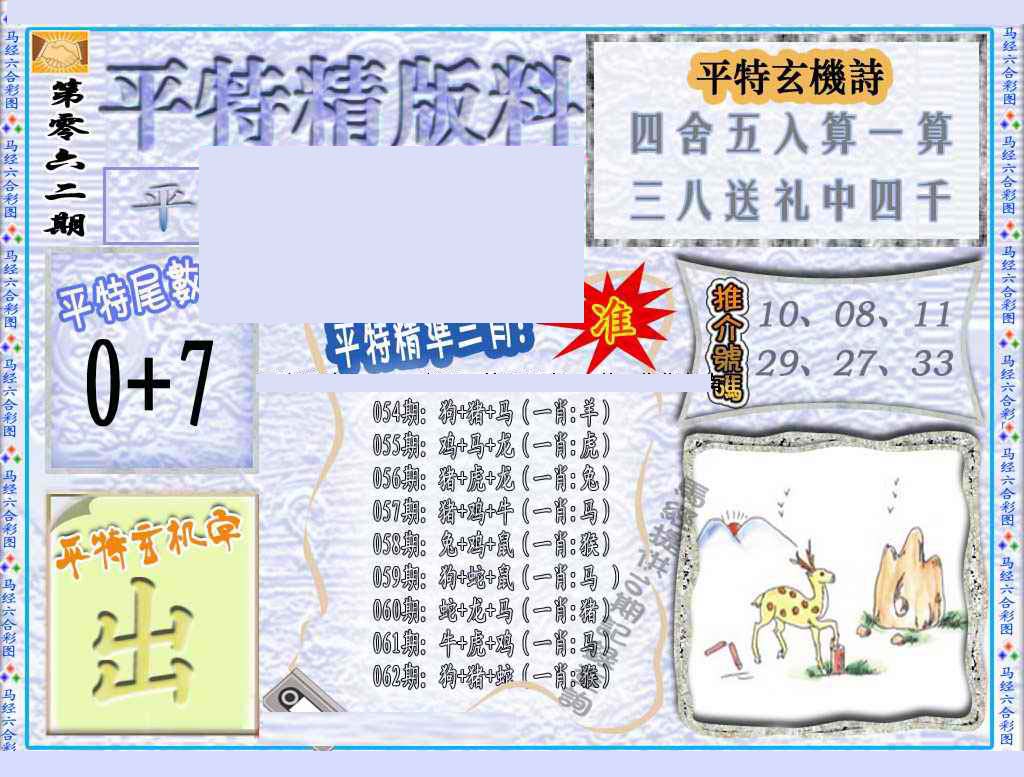 第零六二期
平特精版料
平
平特玄機詩
四舍五入算一算
三八送礼中四千
平特尾數
0+7
平特精準三肖!
准
推介號碼
10、08、11
29、27、33
054期: 狗+猪+马 (一肖:羊)
055期: 鸡+马+龙 (一肖:虎)
056期: 猪+虎+龙 (一肖:兔)
057期: 猪+鸡+牛 (一肖:马)
058期: 兔+鸡+鼠 (一肖:猴)
059期: 狗+蛇+鼠 (一肖:马 )
060期: 蛇+龙+马 (一肖:猪)
061期: 牛+虎+鸡 (一肖:马)
062期: 狗+猪+蛇 (一肖:猴)
平特玄机字
出
马经六合彩图 马经六合彩图 马经六合彩图 马经六合彩图 马经六合彩图 马经六合彩图 马经六合彩
马经六合彩图 马经六合彩图 马经六合彩图 马经六合彩图 马经六合彩图 马经六合彩图 马经六合彩图